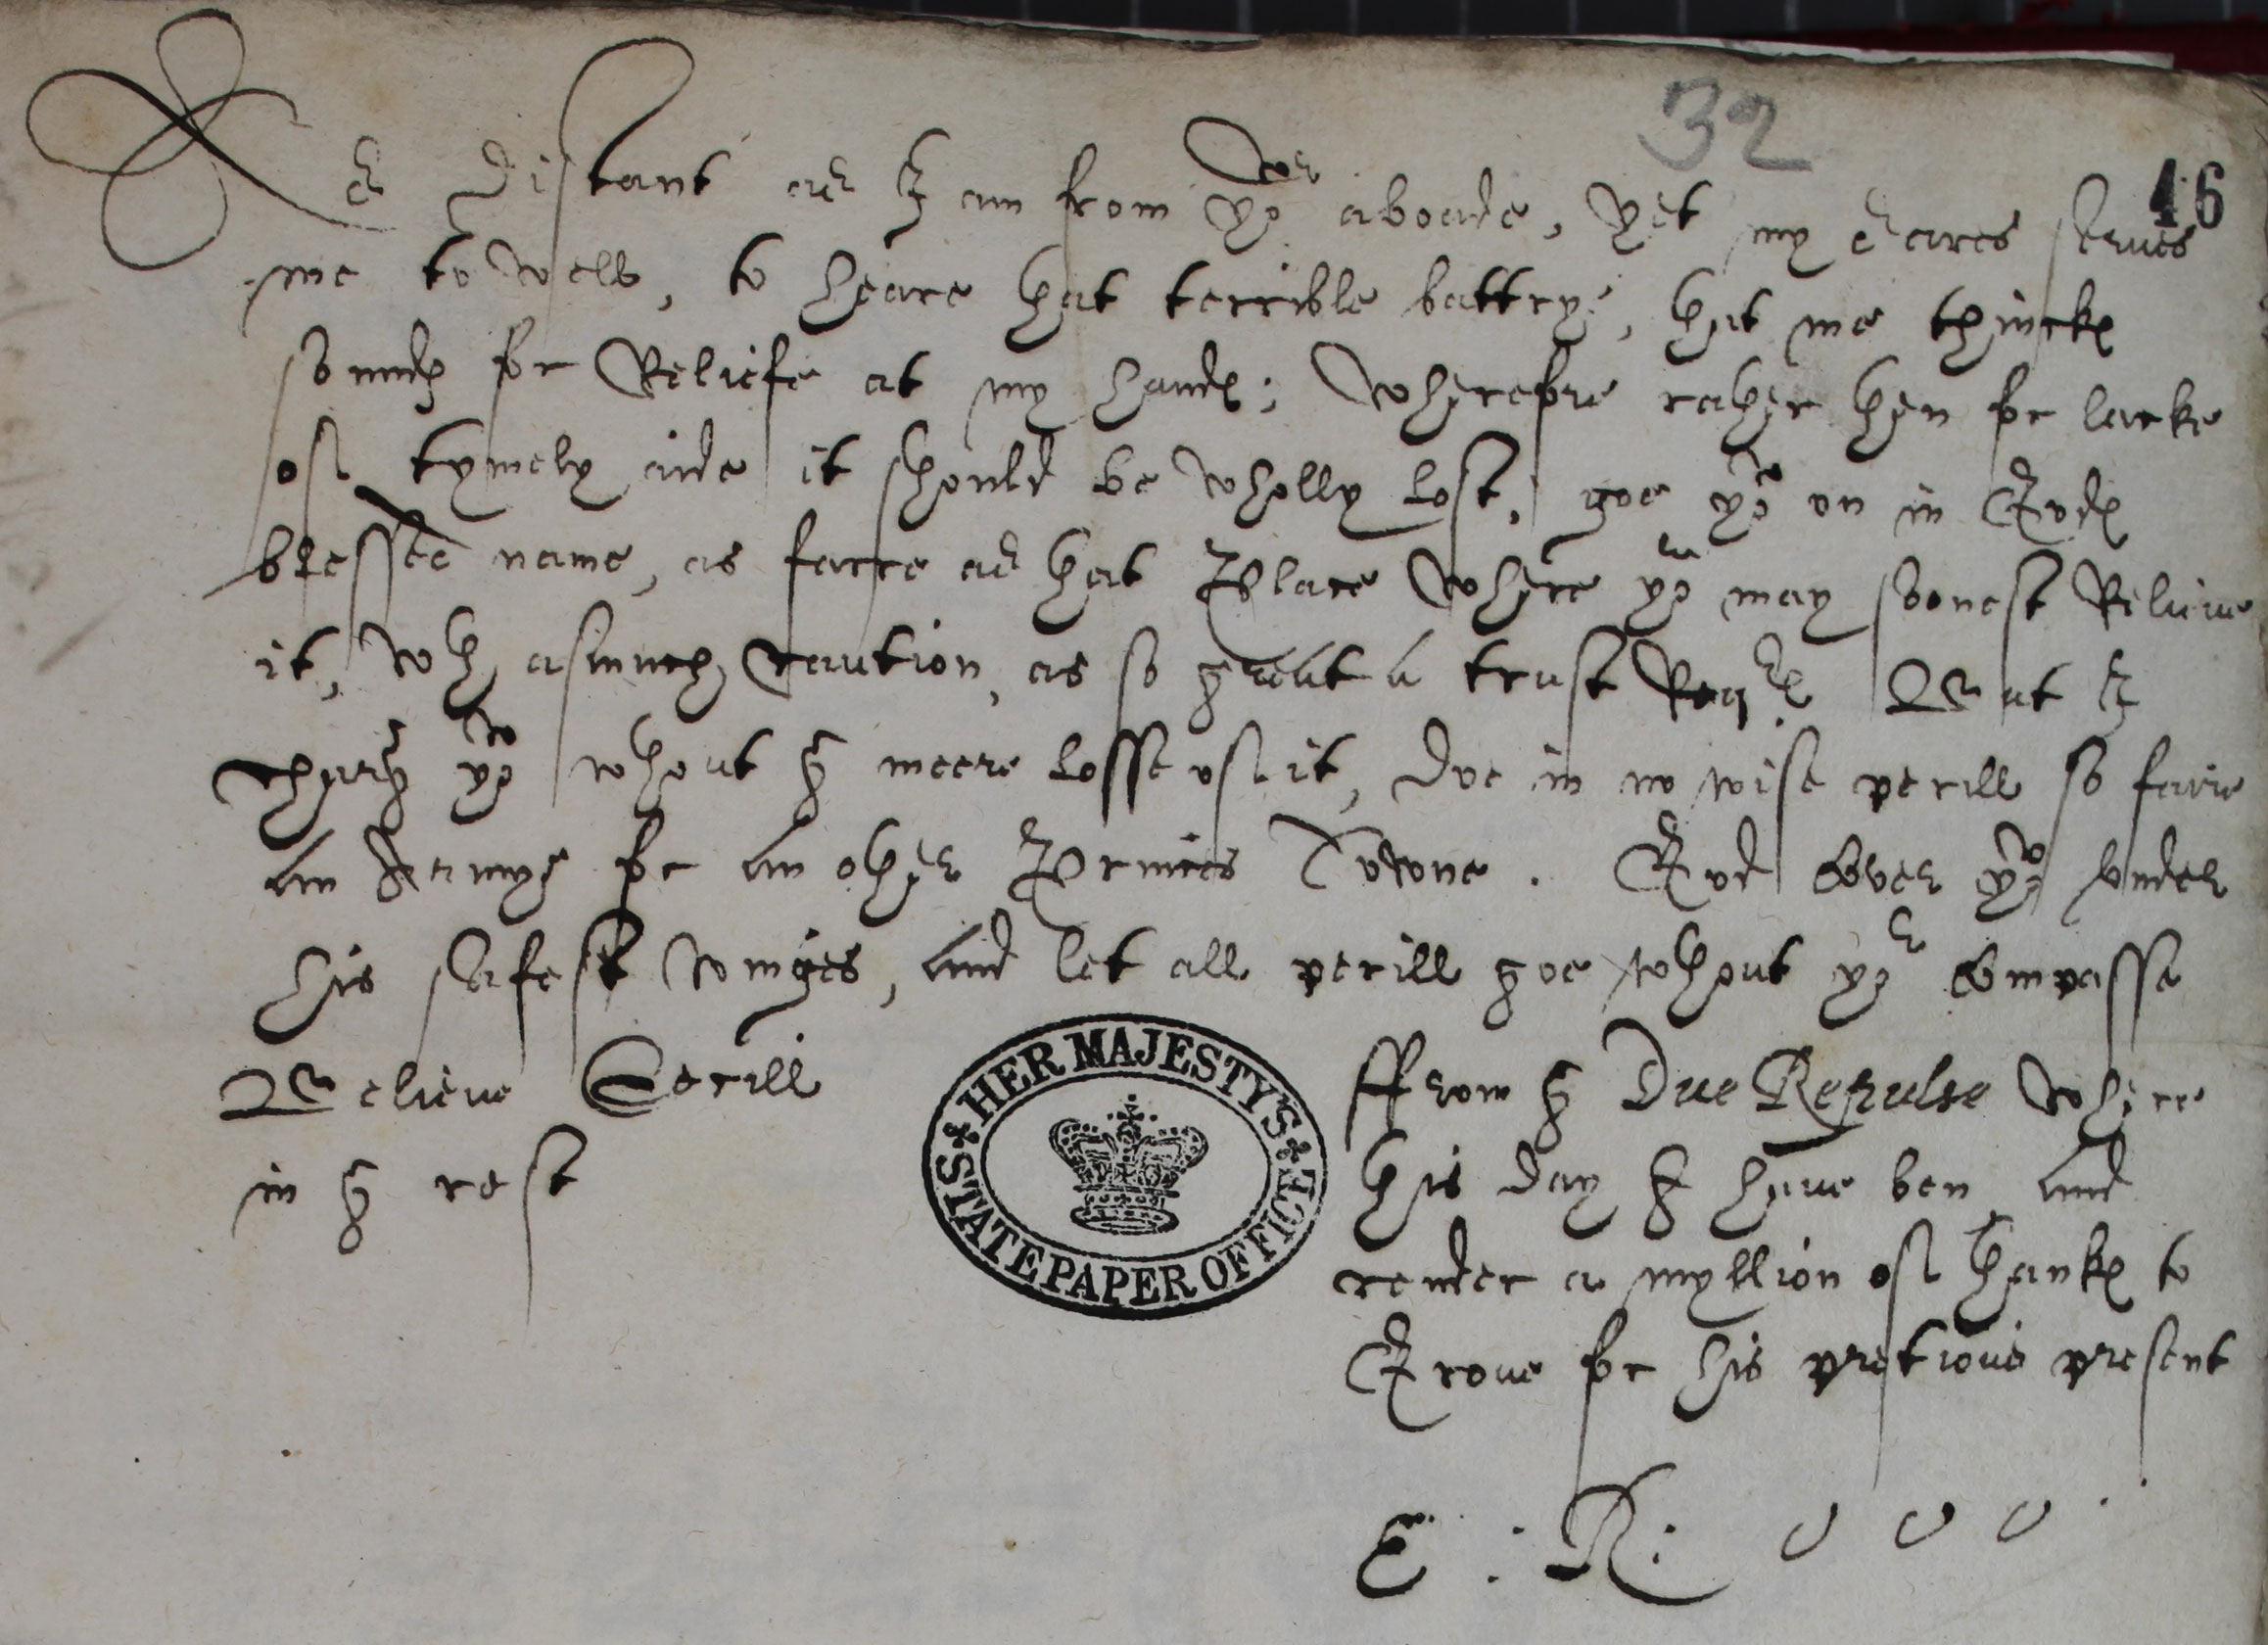 32
46
As distant as I am from yor aboade, yet my eares serues
me to well, to heare that terrible battrye, that me thinckes
soundes for Reliefe at my handes; Wherefore rather then for lacke
of tymely aide it should be wholly lost, goe you on in Godes
blessed name, as farre as that Place where you may soonest Relieue
it, wth asmuch caution, as so great a trust Requires But I
charge you wthout the meere losse of it, doe in no wise perill so faire
an Armye for an other Princes Towne. God couer you vnder
his safest winges, and let all perill goe wthout yor compasse
Belieue Cecill
in the rest
ffrom the Due Repulse where
this day I haue ben, and
render a myllion of thankes to
Groue for his pretious present
E : R:
HER MAJESTY'S
STATE PAPER OFFICE